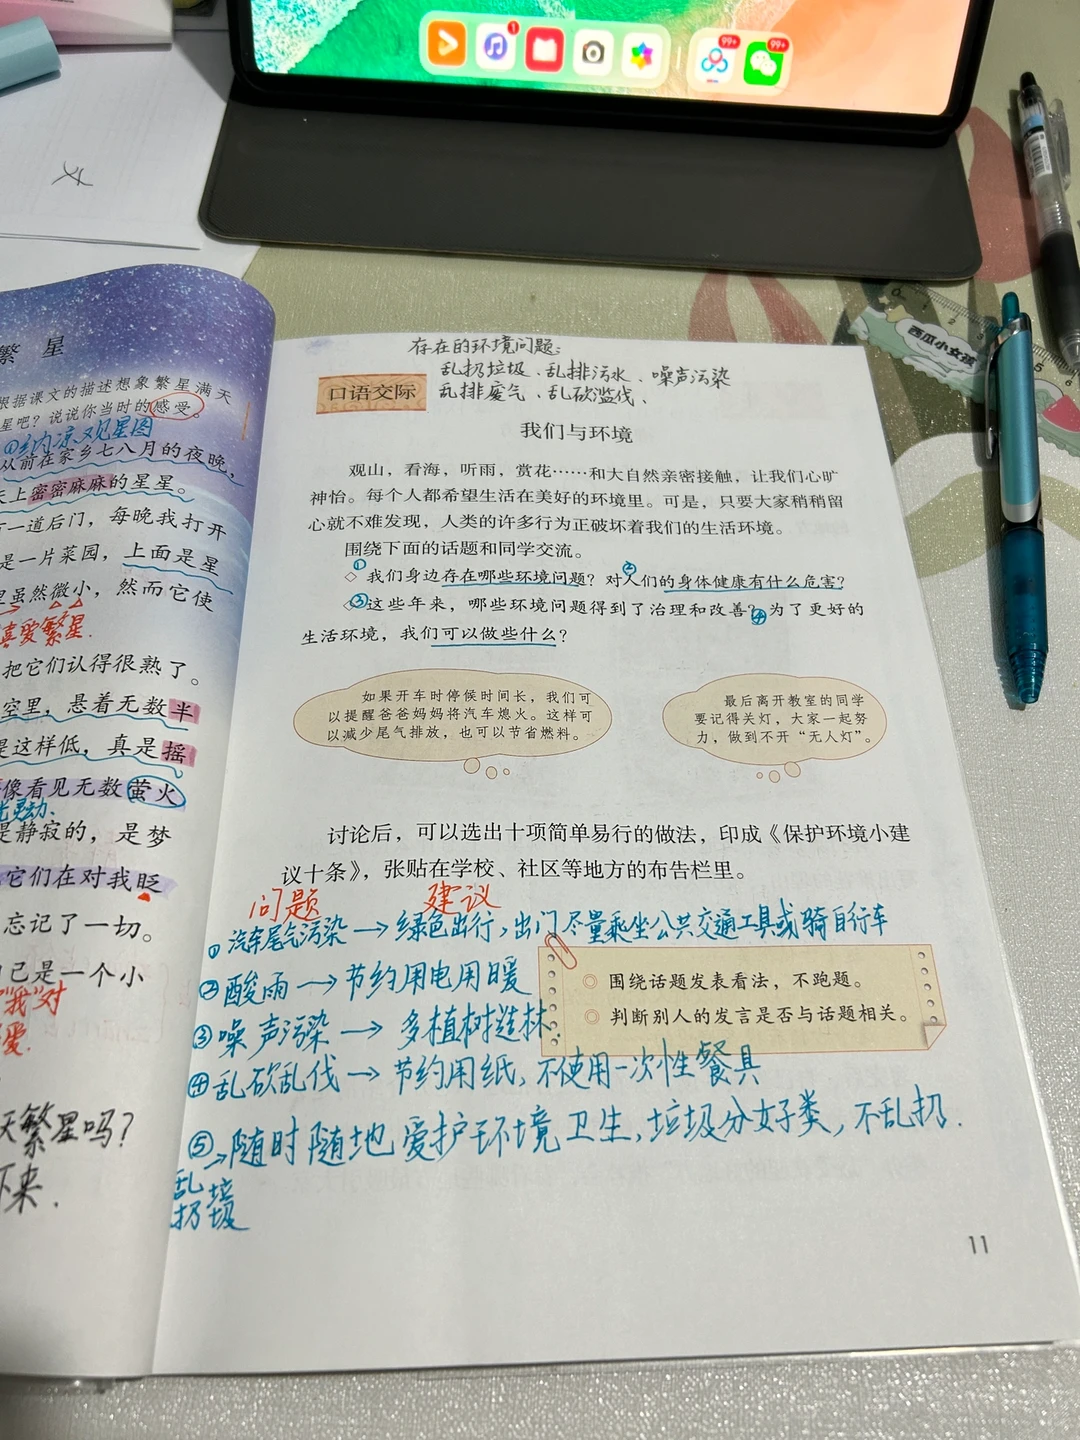 1
99+
99+
文
西瓜小女孩
0 1 2 3 5
繁 星
根据课文的描述想象繁星满天
星吧？说说你当时的感受。
从前在家乡七八月的夜晚，
天上密密麻麻的星星。
有一道后门，每晚我打开
是一片菜园，上面是星
里虽然微小，然而它使
喜爱繁星.
把它们认得很熟了。
空里，悬着无数半
是这样低，真是摇
像看见无数萤火
是静寂的，是梦
它们在对我眨
忘记了一切。
自己是一个小
"我"对
爱.
天繁星吗？
下来.
存在的环境问题：
乱扔垃圾、乱排污水、噪声污染
乱排废气、乱砍滥伐、
口语交际
我们与环境
观山，看海，听雨，赏花……和大自然亲密接触，让我们心旷
神怡。每个人都希望生活在美好的环境里。可是，只要大家稍稍留
心就不难发现，人类的许多行为正破坏着我们的生活环境。
围绕下面的话题和同学交流。
① ②
◇ 我们身边存在哪些环境问题？对人们的身体健康有什么危害？
◇③这些年来，哪些环境问题得到了治理和改善？④为了更好的
生活环境，我们可以做些什么？
如果开车时停候时间长，我们可
以提醒爸爸妈妈将汽车熄火。这样可
以减少尾气排放，也可以节省燃料。
最后离开教室的同学
要记得关灯，大家一起努
力，做到不开“无人灯”。
讨论后，可以选出十项简单易行的做法，印成《保护环境小建
议十条》，张贴在学校、社区等地方的布告栏里。
问题 建议
①汽车尾气污染→绿色出行，出门尽量乘坐公共交通工具或骑自行车
②酸雨→节约用电用暖
③噪声污染→多植树造林.
④乱砍乱伐→节约用纸，不使用一次性餐具
⑤→随时随地爱护环境卫生，垃圾分好类，不乱扔.
乱垃
扔圾
◎ 围绕话题发表看法，不跑题。
◎ 判断别人的发言是否与话题相关。
11